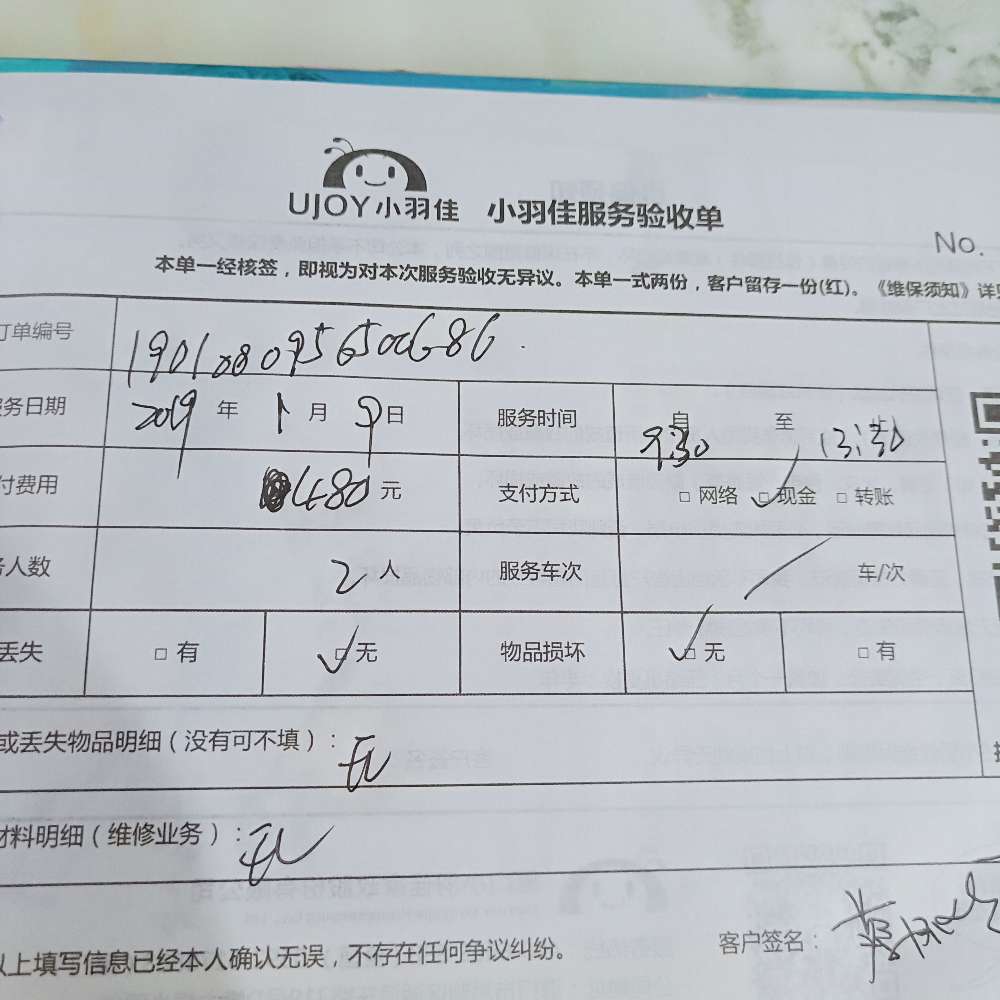 UJOY小羽佳 小羽佳服务验收单
No.
本单一经核签，即视为对本次服务验收无异议。本单一式两份，客户留存一份(红)。《维保须知》详见
订单编号
服务日期 2019 年 1 月 9 日 服务时间 自 9:30 至 13:30
付费用 480 元 支付方式 □ 网络 □ 现金 □ 转账
务人数 2 人 服务车次 / 车/次
丢失 □ 有 □ 无 物品损坏 □ 无 □ 有
或丢失物品明细（没有可不填）: 无
材料明细（维修业务）: 无
以上填写信息已经本人确认无误，不存在任何争议纠纷。 客户签名: